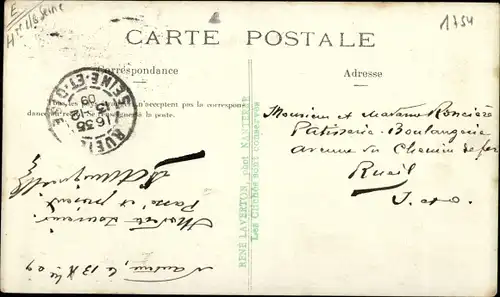 E
Hte de Seine
1754
CARTE POSTALE
Correspondance
Adresse
Tous les pays étrangers n'acceptent pas la correspon-
dance au recto. Se renseigner à la poste.
RUEIL
SEINE-ET-OISE
16 35
13-12
09
RENÉ LAVERTON, phot NANTERRE
Les Clichés sont conservés
Monsieur et Madame Roncière
Patisserie-Boulangerie
avenue du Chemin de fer
Rueil
S.-&-O.
Nanterre, le 13 09
souvenir
Passé et présent